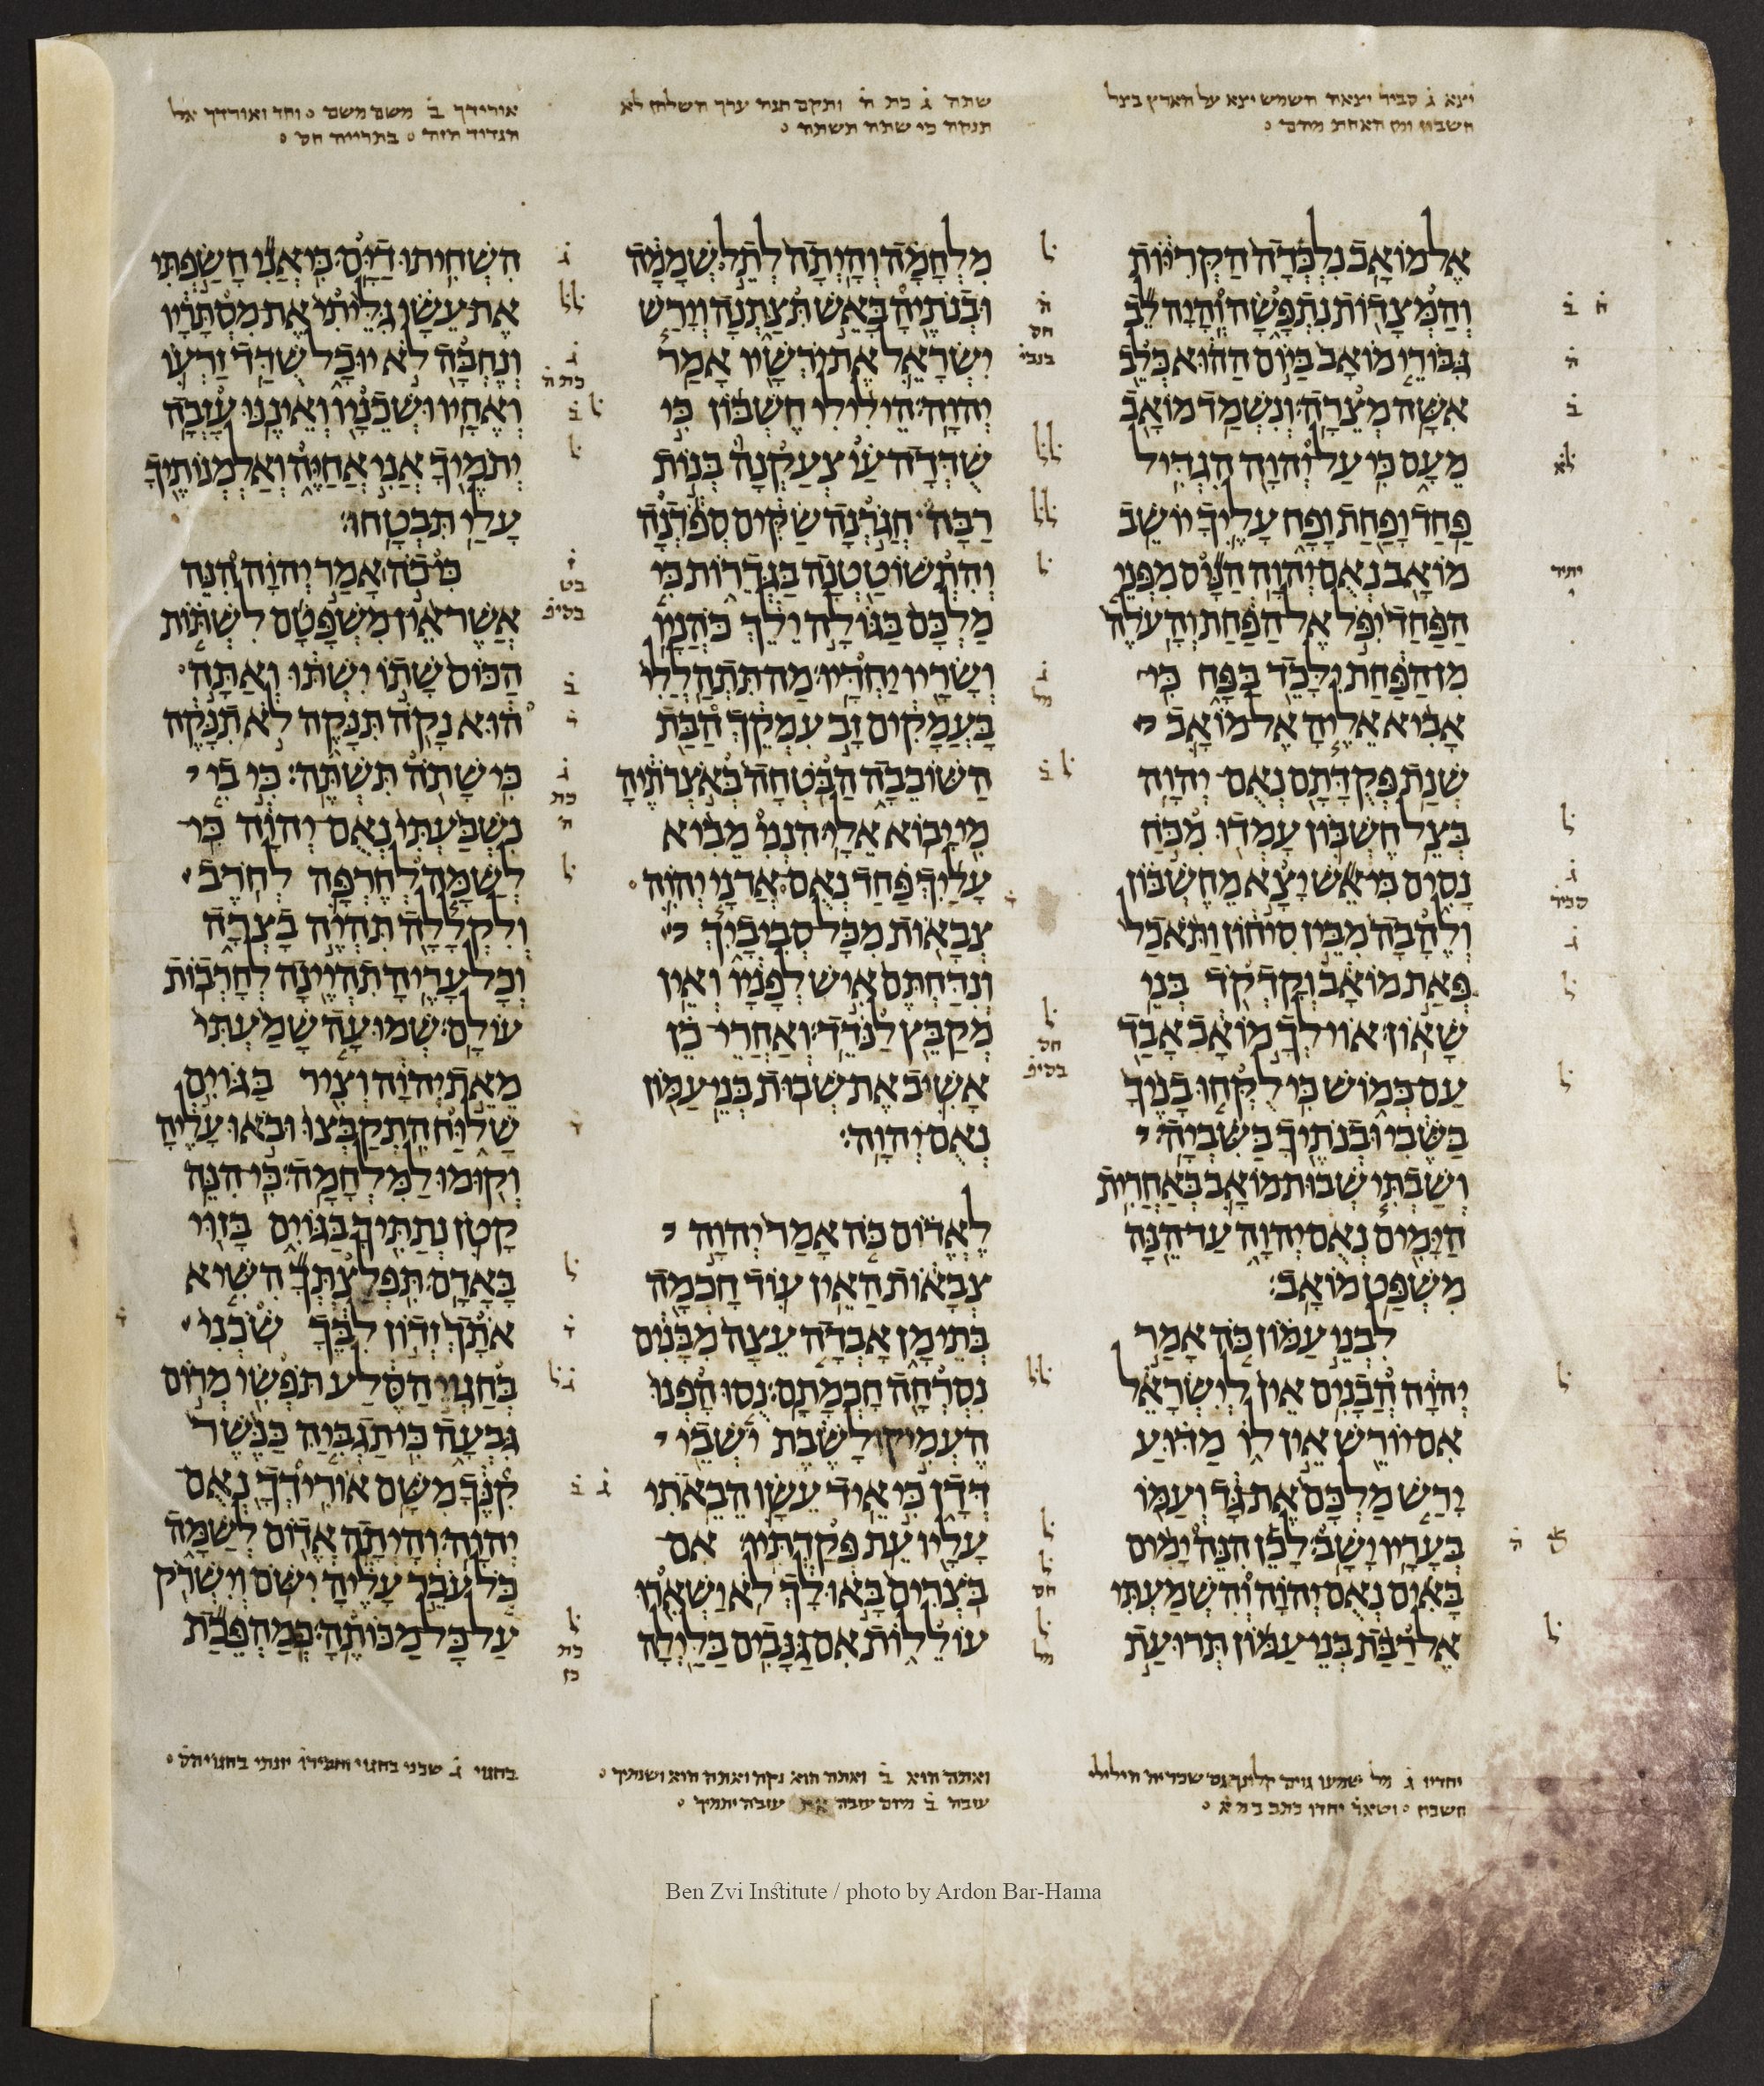 יצא ג̇ סביר יצאה השמש יצא על הארץ בצל
חשבון ומן האחת מהם
אֶל מוֹאָב נִלְכְּדָה הַקְּרִיּוֹת
וְהַמְּצָדוֹת נִתְפָּשָׂה וְהָיָה לֵב
גִּבּוֹרֵי מוֹאָב בַּיּוֹם הַהוּא כְּלֵב
אִשָּׁה מְצֵרָה׃ וְנִשְׁמַד מוֹאָב
מֵעָם כִּי עַל יְהוָה הִגְדִּיל׃
פַּחַד וָפַחַת וָפָח עָלֶיךָ יוֹשֵׁב
מוֹאָב נְאֻם יְהוָה׃ הַנָּיס מִפְּנֵי
הַפַּחַד יִפֹּל אֶל הַפַּחַת וְהָעֹלֶה
מִן הַפַּחַת יִלָּכֵד בַּפָּח כִּי
אָבִיא אֵלֶיהָ אֶל מוֹאָב
שְׁנַת פְּקֻדָּתָם נְאֻם יְהוָה׃
בְּצֵל חֶשְׁבּוֹן עָמְדוּ מִכֹּחַ
נָסִים כִּי אֵשׁ יָצָא מֵחֶשְׁבּוֹן
וְלֶהָבָה מִבֵּין סִיחוֹן וַתֹּאכַל
פְּאַת מוֹאָב וְקָדְקֹד בְּנֵי
שָׁאוֹן׃ אוֹי לְךָ מוֹאָב אָבַד
עַם כְּמוֹשׁ כִּי לֻקְּחוּ בָנֶיךָ
בַּשֶּׁבִי וּבְנֹתֶיךָ בַּשִּׁבְיָה׃
וְשַׁבְתִּי שְׁבוּת מוֹאָב בְּאַחֲרִית
הַיָּמִים נְאֻם יְהוָה עַד הֵנָּה
מִשְׁפַּט מוֹאָב׃
לִבְנֵי עַמּוֹן כֹּה אָמַר
יְהוָה הֲבָנִים אֵין לְיִשְׂרָאֵל
אִם יוֹרֵשׁ אֵין לוֹ מַדּוּעַ
יָרַשׁ מַלְכָּם אֶת גָּד וְעַמּוֹ
בְּעָרָיו יָשָׁב׃ לָכֵן הִנֵּה יָמִים
בָּאִים נְאֻם יְהוָה וְהִשְׁמַעְתִּי
אֶל רַבַּת בְּנֵי עַמּוֹן תְּרוּעַת
שתה ג̇ כת ה̇ ותקם חנה ערך השלחן לא
תנקה כי שתה תשתה
מִלְחָמָה וְהָיְתָה לְתֵל שְׁמָמָה
וּבְנֹתֶיהָ בָּאֵשׁ תִּצַּתְנָה וְיָרַשׁ
יִשְׂרָאֵל אֶת יֹרְשָׁיו אָמַר
יְהוָה׃ הֵילִילִי חֶשְׁבּוֹן כִּי
שֻׁדְּדָה עַי צְעַקְנָה בְּנוֹת
רַבָּה חֲגֹרְנָה שַׂקִּים סְפֹדְנָה
וְהִתְשׁוֹטַטְנָה בַּגְּדֵרוֹת כִּי
מַלְכָּם בַּגּוֹלָה יֵלֵךְ כֹּהֲנָיו
וְשָׂרָיו יַחְדָּיו׃ מַה תִּתְהַלְלִי
בָּעֲמָקִים זָב עִמְקֵךְ הַבַּת
הַשּׁוֹבֵבָה הַבֹּטְחָה בְּאֹצְרֹתֶיהָ
מִי יָבוֹא אֵלָי׃ הִנְנִי מֵבִיא
עָלַיִךְ פַּחַד נְאֻם אֲדֹנָי יְהוִה
צְבָאוֹת מִכָּל סְבִיבָיִךְ
וְנִדַּחְתֶּם אִישׁ לְפָנָיו וְאֵין
מְקַבֵּץ לַנֹּדֵד׃ וְאַחֲרֵי כֵן
אָשִׁיב אֶת שְׁבוּת בְּנֵי עַמּוֹן
נְאֻם יְהוָה׃
לֶאֱדוֹם כֹּה אָמַר יְהוָה
צְבָאוֹת הַאֵין עוֹד חָכְמָה
בְּתֵימָן אָבְדָה עֵצָה מִבָּנִים
נִסְרְחָה חָכְמָתָם׃ נֻסוּ הָפְנוּ
הֶעְמִיקוּ לָשֶׁבֶת יֹשְׁבֵי
דְּדָן כִּי אֵיד עֵשָׂו הֵבֵאתִי
עָלָיו עֵת פְּקַדְתִּיו׃ אִם
בֹּצְרִים בָּאוּ לָךְ לֹא יַשְׁאִרוּ
עוֹלֵלוֹת אִם גַּנָּבִים בַּלַּיְלָה
אורידך ב̇ משם משם וחד ואורדך אל
הגדוד הזה בתרייה חס
הִשְׁחִיתוּ דַיָּם׃ כִּי אֲנִי חָשַׂפְתִּי
אֶת עֵשָׂו גִּלֵּיתִי אֶת מִסְתָּרָיו
וְנֶחְבָּה לֹא יוּכָל שֻׁדַּד זַרְעוֹ
וְאֶחָיו וּשְׁכֵנָיו וְאֵינֶנּוּ׃ עָזְבָה
יְתֹמֶיךָ אֲנִי אֲחַיֶּה וְאַלְמְנוֹתֶיךָ
עָלַי תִּבְטָחוּ׃
כִּי כֹה אָמַר יְהוָה הִנֵּה
אֲשֶׁר אֵין מִשְׁפָּטָם לִשְׁתּוֹת
הַכּוֹס שָׁתוֹ יִשְׁתּוּ וְאַתָּה
הוּא נָקֹה תִּנָּקֶה לֹא תִנָּקֶה
כִּי שָׁתֹה תִּשְׁתֶּה׃ כִּי בִי
נִשְׁבַּעְתִּי נְאֻם יְהוָה כִּי
לְשַׁמָּה לְחֶרְפָּה לְחֹרֶב
וְלִקְלָלָה תִּהְיֶה בָצְרָה
וְכָל עָרֶיהָ תִהְיֶינָה לְחָרְבוֹת
עוֹלָם׃ שְׁמוּעָה שָׁמַעְתִּי
מֵאֵת יְהוָה וְצִיר בַּגּוֹיִם
שָׁלוּחַ הִתְקַבְּצוּ וּבֹאוּ עָלֶיהָ
וְקוּמוּ לַמִּלְחָמָה׃ כִּי הִנֵּה
קָטֹן נְתַתִּיךָ בַּגּוֹיִם בָּזוּי
בָּאָדָם׃ תִּפְלַצְתְּךָ הִשִּׁיא
אֹתָךְ זְדוֹן לִבֶּךָ שֹׁכְנִי
בְּחַגְוֵי הַסֶּלַע תֹּפְשִׂי מְרוֹם
גִּבְעָה כִּי תַגְבִּיהַּ כַּנֶּשֶׁר
קִנֶּךָ מִשָּׁם אוֹרִידְךָ נְאֻם
יְהוָה׃ וְהָיְתָה אֱדוֹם לְשַׁמָּה
כֹּל עֹבֵר עָלֶיהָ יִשֹּׁם וְיִשְׁרֹק
עַל כָּל מַכּוֹתֶהָ׃ כְּמַהְפֵּכַת
ואתה הוא ב̇ ואתה הוא נקה ואתה הוא ושנותיך
Ben Zvi Institute / photo by Ardon Bar-Hama